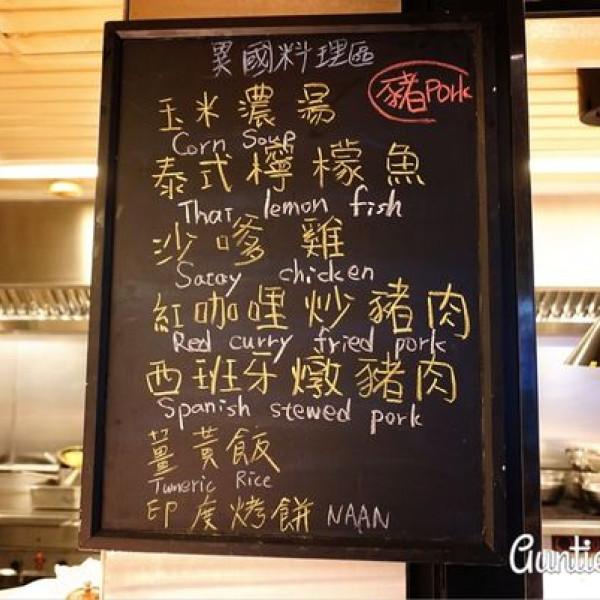 異國料理區
豬 Pork
玉米濃湯
Corn Soup
泰式檸檬魚
Thai lemon fish
沙嗲雞
Satay chicken
紅咖哩炒豬肉
Red curry fried pork
西班牙燉豬肉
Spanish stewed pork
薑黃飯
Tumeric Rice
印度烤餅 NAAN
Auntie